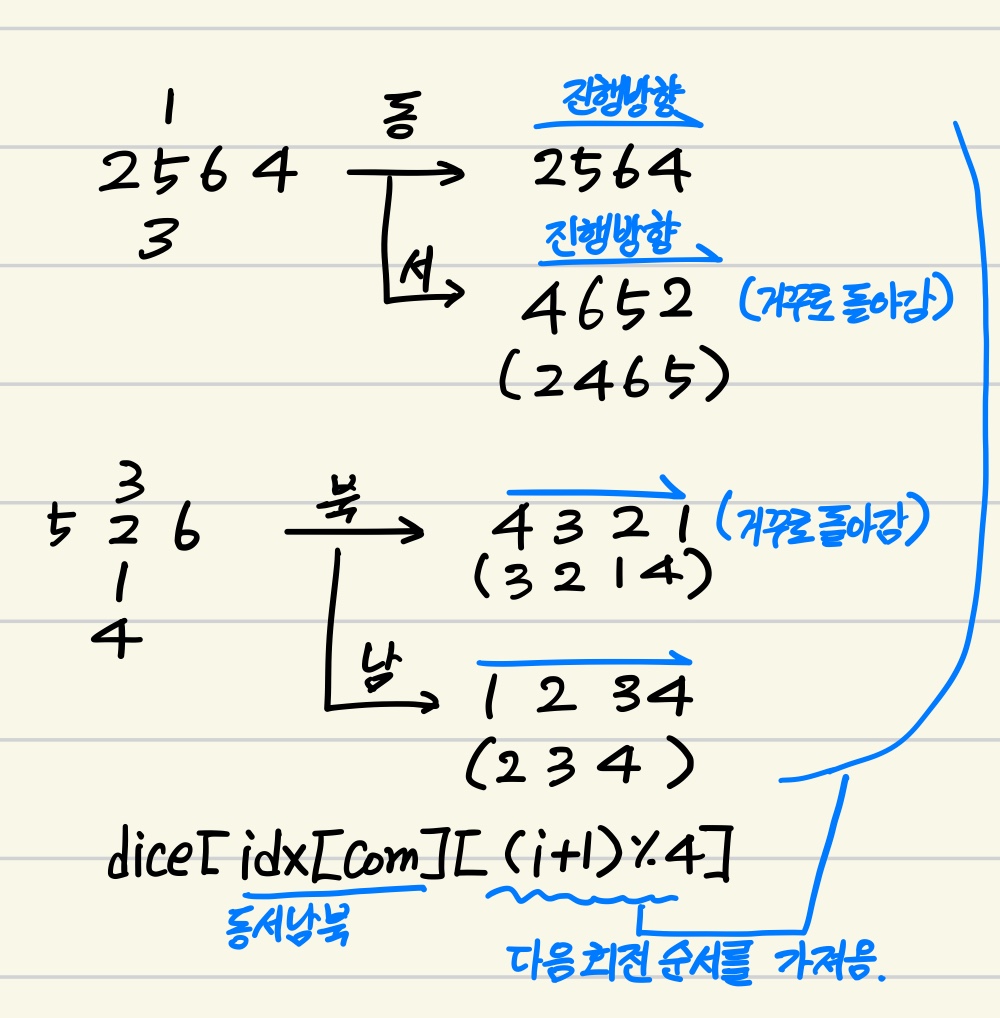 1
2 5 6 4
3
동
진행방향
2564
서
진행방향
4652 (거꾸로 돌아감)
(2465)
3
5 2 6
1
4
북
4 3 2 1 (거꾸로 돌아감)
(3 2 1 4)
남
1 2 3 4
(2 3 4 )
dice[idx[com][(i+1)%4]
동서남북
다음 회전 순서를 가져옴.